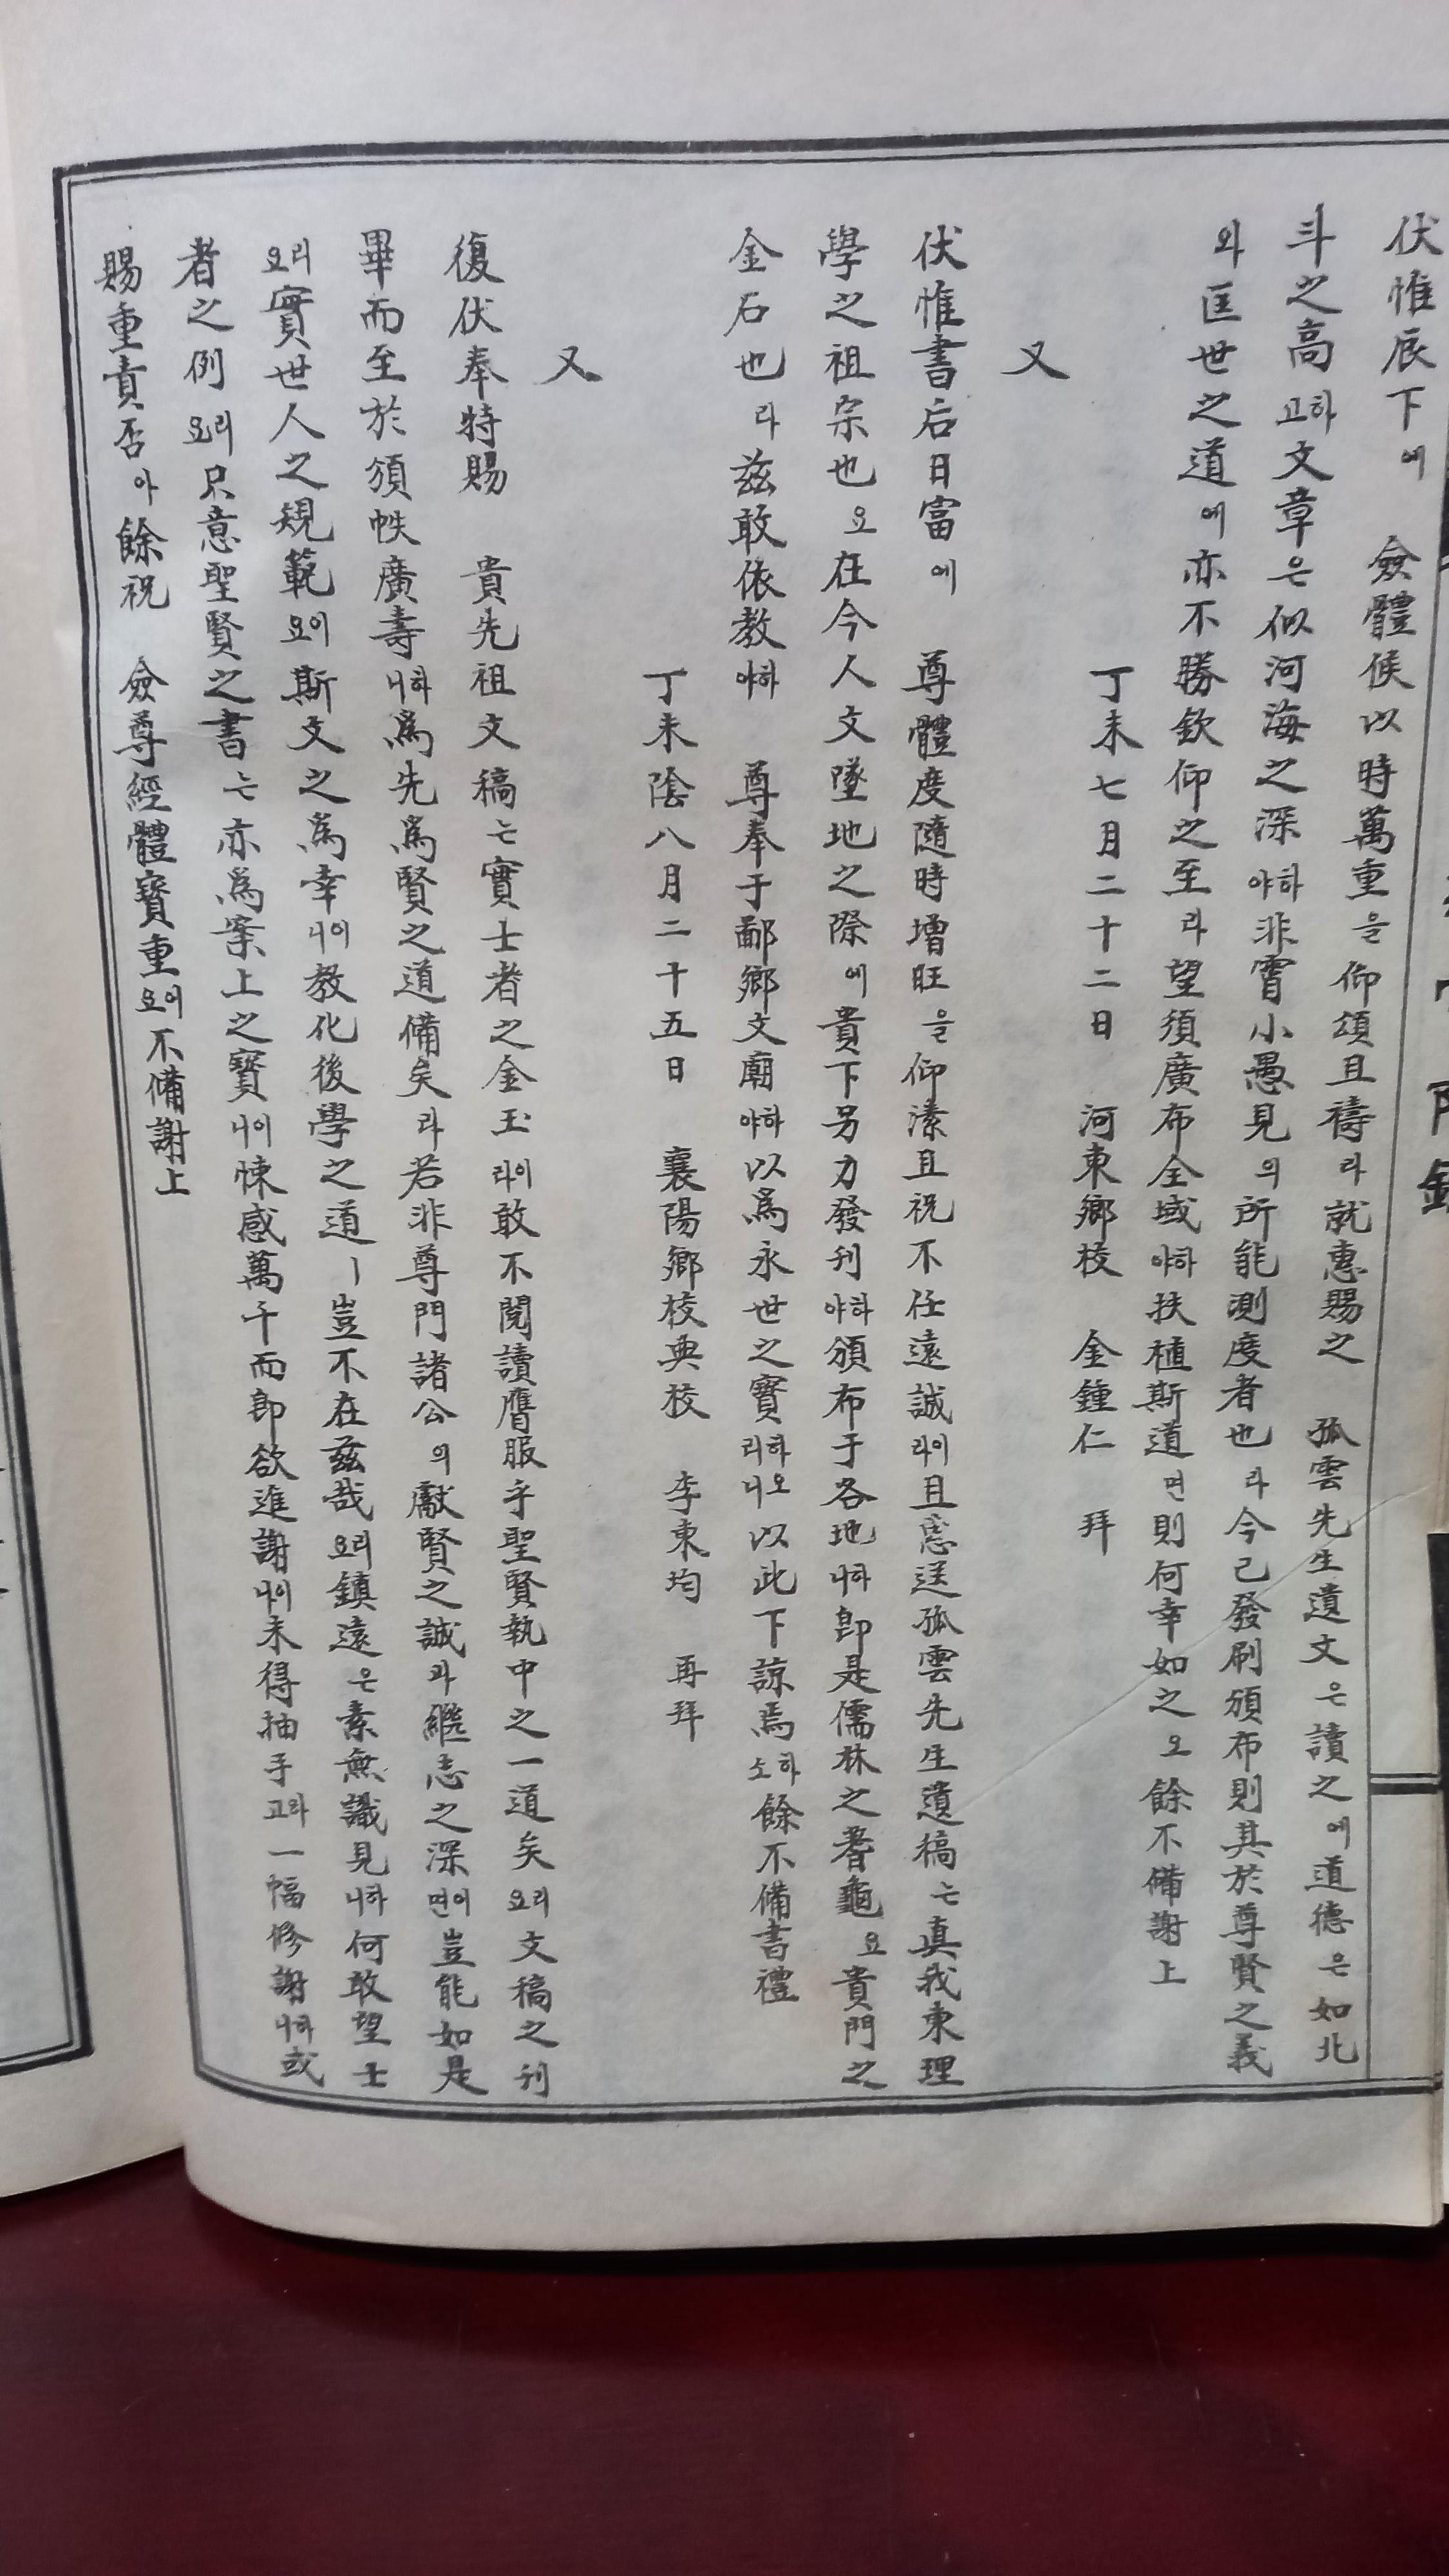 伏惟辰下에 僉體候以時萬重을仰頌且禱라就惠賜之 孤雲先生遺文은讀之에道德은如北
斗之高하고文章은似河海之深하야非霄小愚見의所能測度者也라今已發刷頒布則其於尊賢之義
와匡世之道에亦不勝欽仰之至라望須廣布全域하야扶植斯道면則何幸如之오餘不備謝上
丁未七月二十二日 河東鄉校 金鍾仁 拜
又
伏惟書后日富에 尊體度隨時增旺을仰溸且祝不任遠誠이라且惠送孤雲先生遺稿는真我東理
學之祖宗也요在今人文墜地之際에貴下另力發刊하야頒布于各地하니卽是儒林之蓍龜요貴門之
金石也라茲敢依教하야 尊奉于鄙鄉文廟하야以爲永世之寶하리오니以此下諒焉하소餘不備書禮
丁未陰八月二十五日 襄陽鄉校典校 李東均 再拜
又
復伏奉特賜 貴先祖文稿는實士者之金玉이라敢不閱讀膺服乎聖賢執中之一道矣리요文稿之刊
畢而至於頒帙廣壽하니爲先爲賢之道備矣라若非尊門諸公의獻賢之誠과繼志之深이면豈能如是
리요實世人之規範이요斯文之爲幸이니教化後學之道ㅣ豈不在茲哉리요鎮遠은素無識見하니何敢望士
者之例리요只意聖賢之書는亦爲案上之寶이니悚感萬千而卽欲進謝이니未得抽手라고一幅修謝하니或
賜重責否아餘祝 僉尊經體寶重이요不備謝上